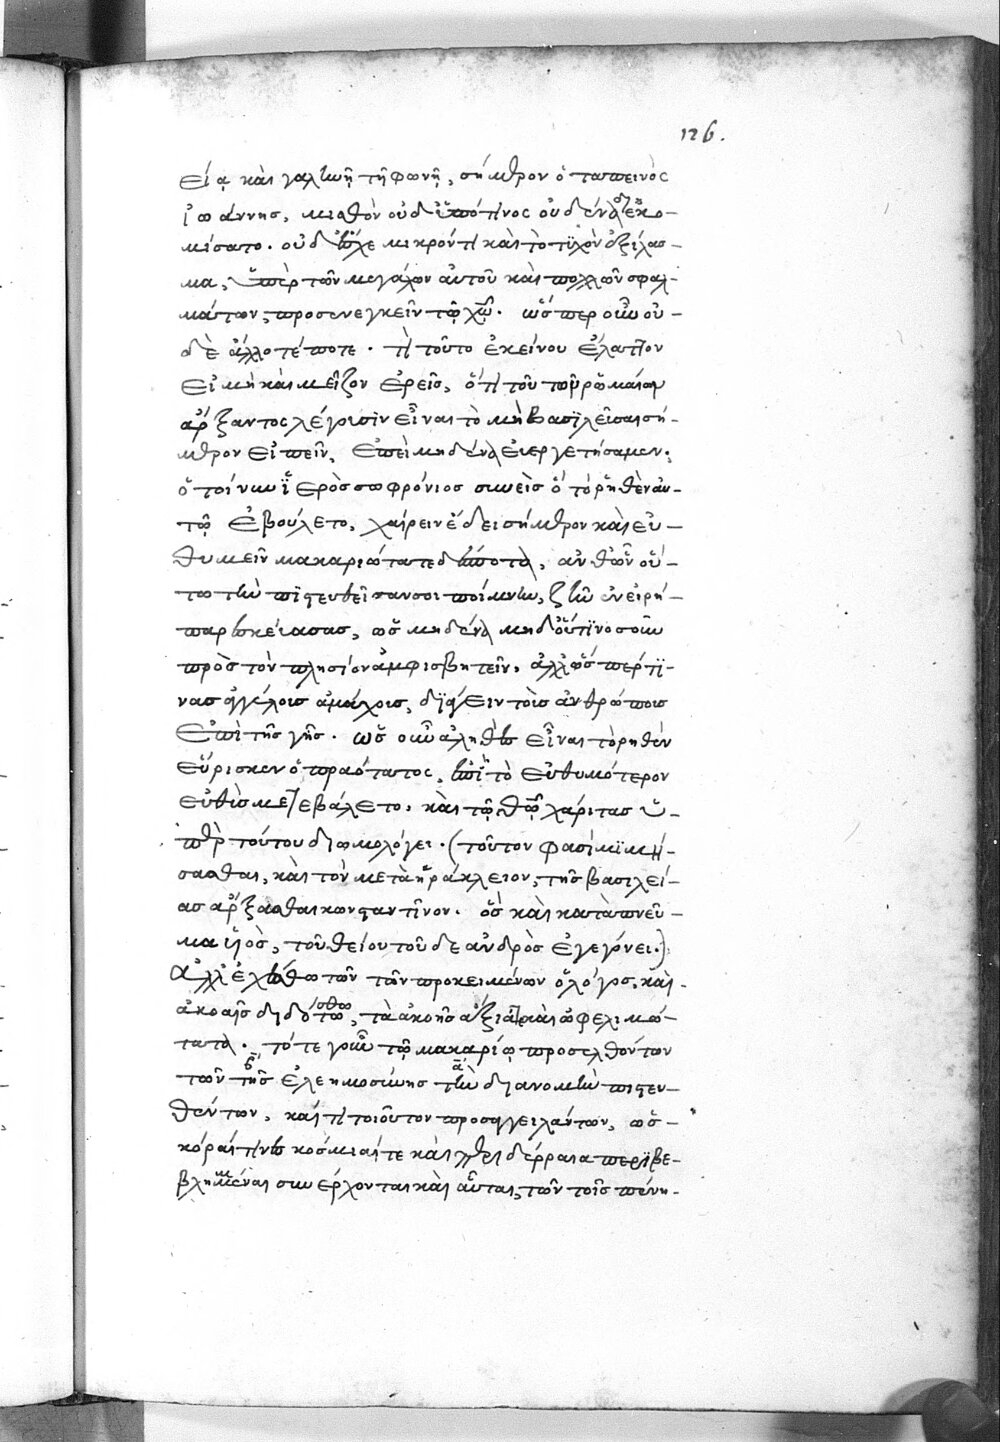 126.
εία καὶ γαληνῇ τῇ φωνῇ, σήμερον ὁ ταπεινὸς
ἰωάννης, μισθὸν οὐδὲ ὑπό τινος οὐδένα ἐκο-
μίσατο. οὐδ' ἔσχε μικρόν τι καὶ τὸ τυχὸν ἐξίλασ-
μα, ὑπὲρ τῶν μεγάλων αὐτοῦ καὶ πολλῶν σφαλ-
μάτων, προσενεγκεῖν τῷ χῷ. ὥσπερ οὖν οὐ-
δὲ ἄλλοτέ ποτε. τί τοῦτο ἐκείνου ἔλαττον
εἰ μὴ καὶ μεῖζον ἐρεῖς, ὅτι του τῶν ῥωμαίων
ἄρξαντος λέγουσιν εἶναι τὸ μὴ βασιλεῦσαι σή-
μερον εἰπεῖν, ἐπεὶ μηδένα εὐεργετήσαμεν.
ὁ τοίνυν ἱερὸς σωφρόνιος συνεὶς ὃ τὸ ῥηθὲν αὐ-
τῷ ἐβούλετο, χαίρειν ἔδει σήμερον καὶ εὐ-
θυμεῖν μακαριώτατε δέσποτα, ἀνθ' ὧν οὕ-
τω τὴν πιστευθεῖσαν σοι ποίμνην, ζῆν ἐν εἰρή-
παρεσκεύασας, ὡς μηδένα μηδ' οὕτινοσοῦν
πρὸς τὸν πλησίον ἀμφισβητεῖν, ἀλλ' ὥσπέρ τι-
νας ἀγγέλοις ἀμάχοις, διάγειν τοῖς ἀνθρώποις
ἐπὶ τῆς γῆς. ὡς οὖν ἀληθὲς εἶναι τὸ ῥηθὲν
εὕρισκεν ὁ πραότατος, ἐπὶ τὸ εὐθυμότερον
εὐθὺς μετεβάλετο, καὶ τῷ θῷ χάριτας ὑ-
πὲρ τούτου διωμολόγει. (τοῦτον φασὶ μιμή-
σασθαι, καὶ τὸν μετὰ ἡράκλειον, τῆς βασιλεί-
ας ἄρξασθαι κωνσταντῖνον. ὃς καὶ κατὰ πνεῦ-
μα υἱὸς, τοῦ θείου τοῦδε ἀνδρὸς ἐγεγόνει.)
ἀλλ' ἐχέσθω τῶν τῶν προκειμένων ὁ λόγος, καὶ
ἀκοαῖς διδότω, τὰ ἀκοῆς ἄξια καὶ ὠφελιμώ-
τατα. τότε γοῦν τῷ μακαρίῳ προσελθόντων
τῶν τῆς ἐλεημοσύνης τὴν διανομὴν πιστευ-
θέντων, καί τι τοιοῦτον προσαγγειλάντων, ὡς
κόραί τινες κόσμιαί τε καὶ δέρραια περιβε-
βλημέναι συνέρχονται καὶ αὗται, τῶν τοῖς πένη-